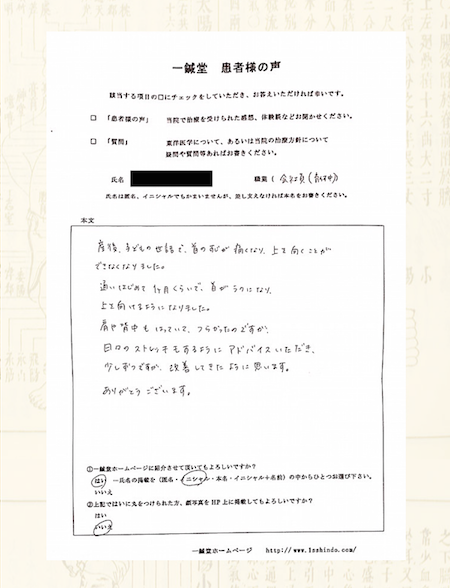 一鍼堂 患者様の声
該当する項目の□にチェックをしていただき、お答えいただければ幸いです。
□ 「患者様の声」 当院で治療を受けられた感想、体験談などお聞かせください。
□ 「質問」 東洋医学について、あるいは当院の治療方針について
疑問や質問等あればお書きください。
氏名 職業( 会社員(育休中)
氏名は匿名、イニシャルでもかまいませんが、差し支えなければ本名をお書きください。
本文
産後、子どもの世話で、首の和が痛くなり、上を向くことが
できなくなりました。
通いはじめて1ヶ月くらいで、首がラクになり、
上を向けるようになりました。
肩や背中もはっていて、つらかったのですが、
日々のストレッチもするようにアドバイスいただき、
少しずつですが、改善してきたように思います。
ありがとうございます。
①一鍼堂ホームページに紹介させて頂いてもよろしいですか?
はい →氏名の掲載を(匿名・イニシャル・本名・イニシャル+名前)の中からひとつお選び下さい。
いいえ
②上記ではいに丸をつけられた方、顔写真をHP上に掲載してもよろしいですか?
はい
いいえ
一鍼堂ホームページ http://www.1sshindo.com/